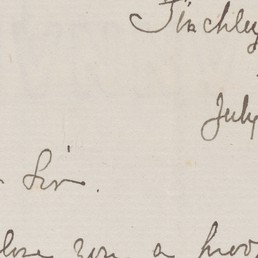 Finchley
July
Sir.
you a